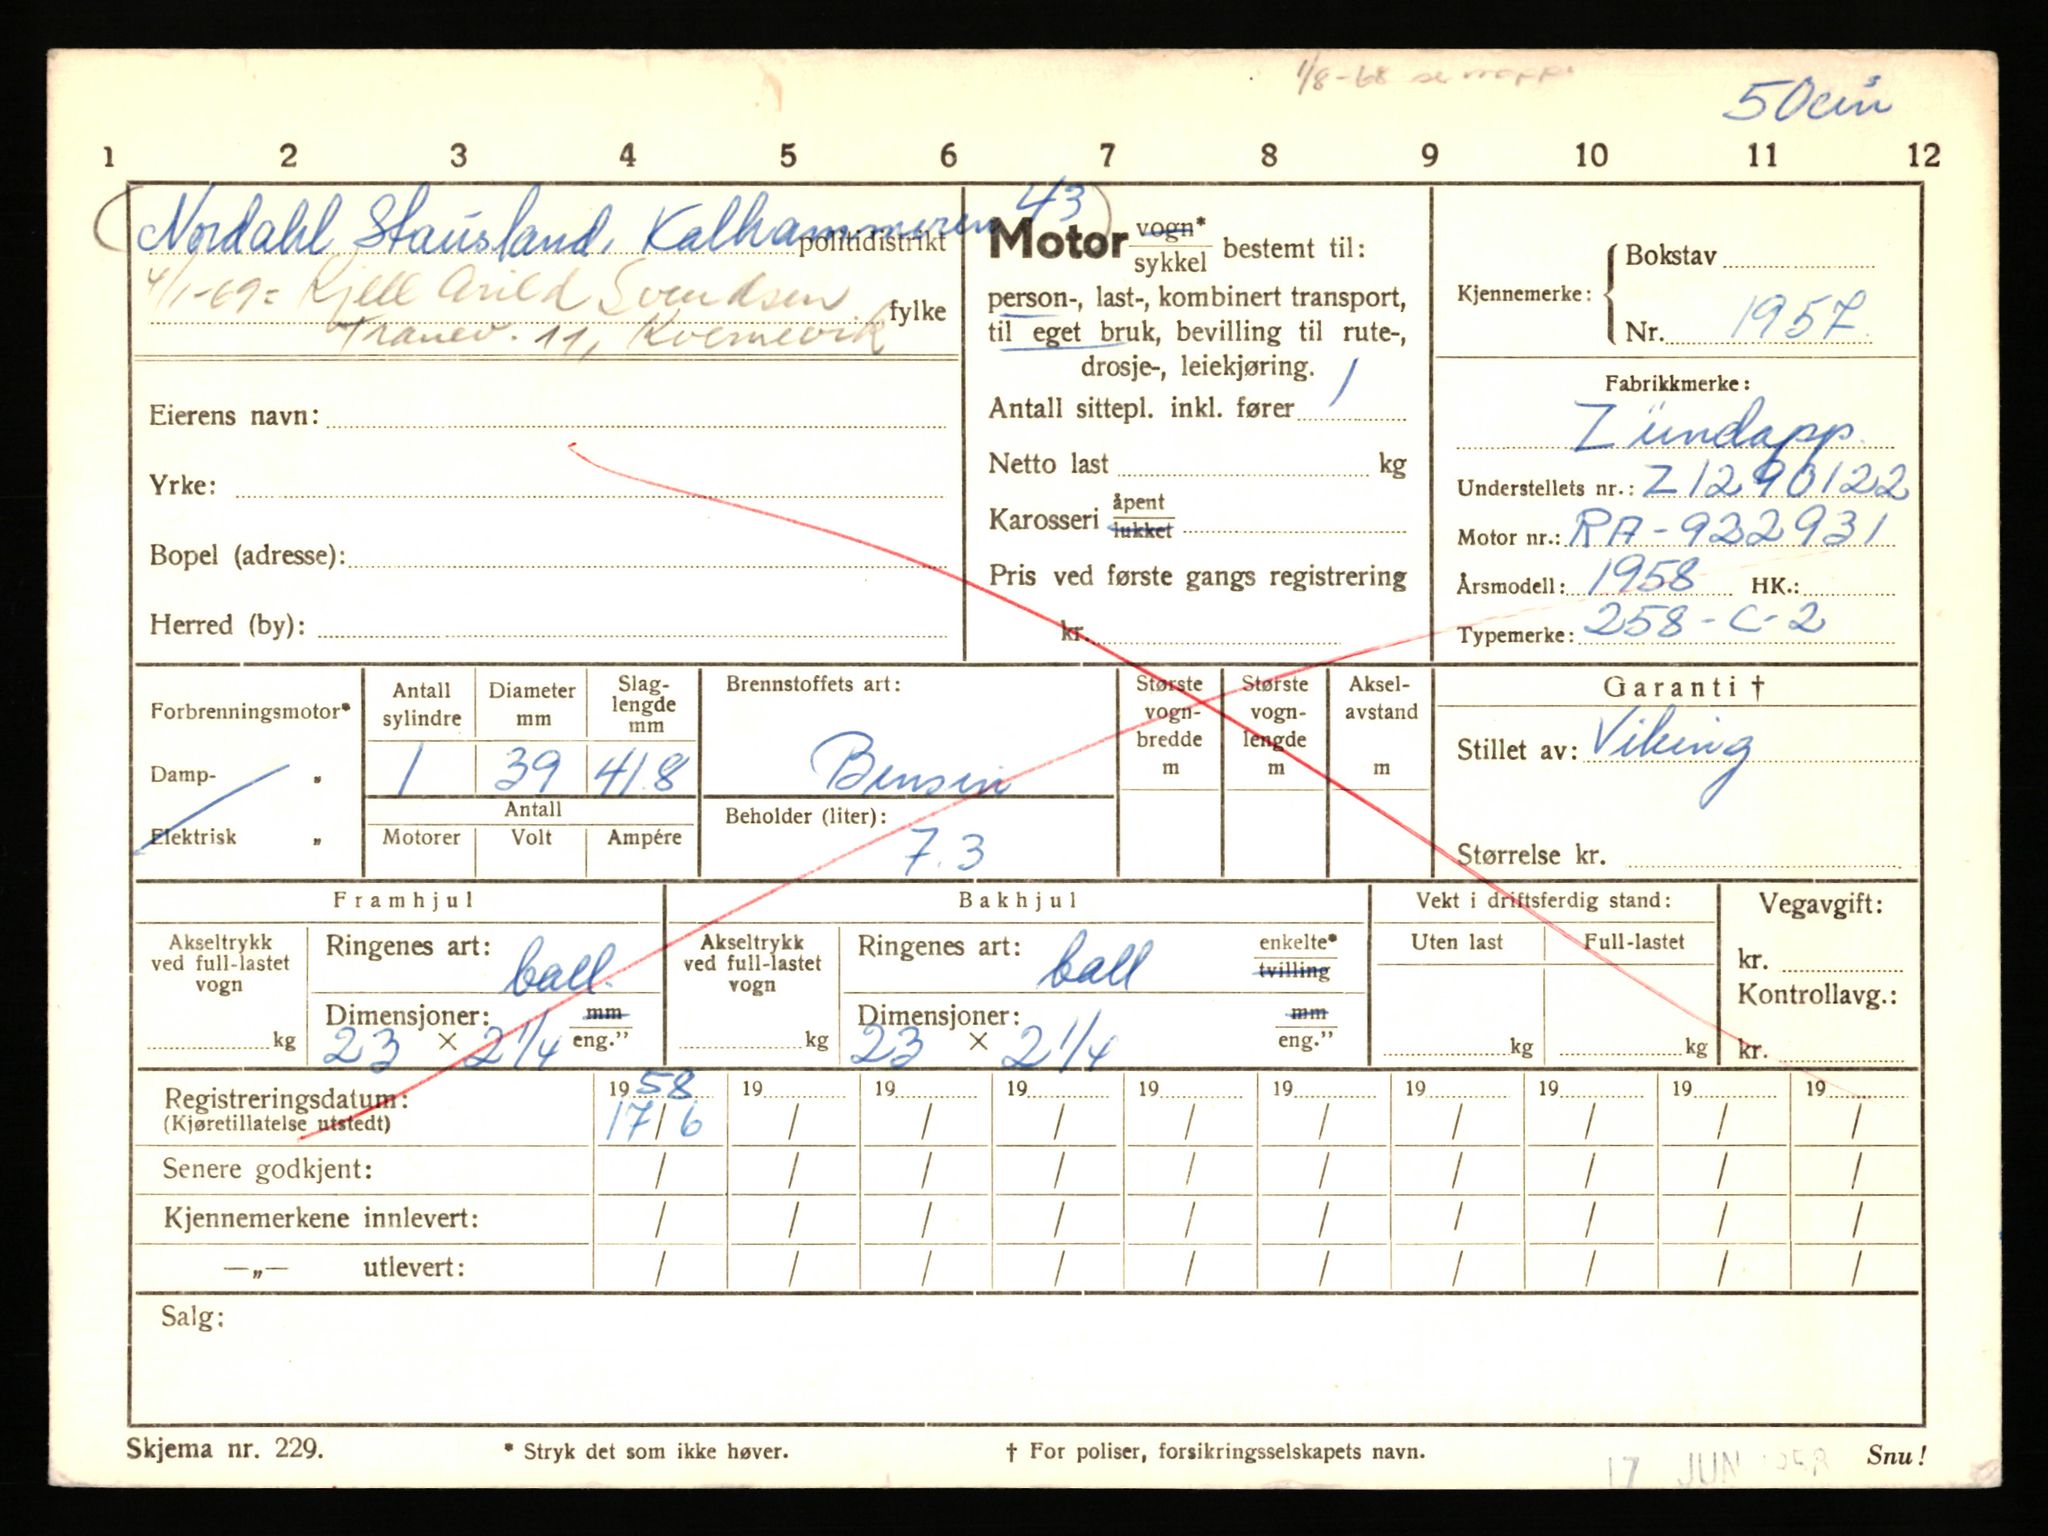 1/8-68 se mappe
50 cm³
1 2 3 4 5 6 7 8 9 10 11 12
(Nordahl Stausland, Kalhammeren 43)
politidistrikt
4/1-69 = Kjell Arild Svendsen
fylke
Tranev. 11, Kvernevik
Eierens navn:
Yrke:
Bopel (adresse):
Herred (by):
Motor vogn* / sykkel bestemt til:
person-, last-, kombinert transport,
til eget bruk, bevilling til rute-,
drosje-, leiekjøring.
Antall sittepl. inkl. fører 1
Netto last kg
Karosseri åpent / lukket
Pris ved første gangs registrering
kr.
Kjennemerke: Bokstav
Nr. 1957
Fabrikkmerke:
Zündapp
Understellets nr.: Z1290122
Motor nr.: RA-922931
Årsmodell: 1958 HK.:
Typemerke: 258-C-2
Forbrenningsmotor*
Damp- „
Elektrisk „
Antall sylindre
Diameter mm
Slag-lengde mm
1 39 41.8
Antall
Motorer Volt Ampére
Brennstoffets art:
Bensin
Beholder (liter):
7.3
Største vogn-bredde m
Største vogn-lengde m
Aksel-avstand m
Garanti †
Stillet av: Viking
Størrelse kr.
Framhjul
Akseltrykk
ved full-lastet
vogn
kg
Ringenes art: ball.
Dimensjoner: mm
23 × 2 1/4 eng.”
Bakhjul
Akseltrykk
ved full-lastet
vogn
kg
Ringenes art: ball enkelte*
tvilling
Dimensjoner: mm
23 × 2 1/4 eng.”
Vekt i driftsferdig stand:
Uten last Full-lastet
kg kg
Vegavgift:
kr.
Kontrollavg.:
kr.
Registreringsdatum: 1958 19 19 19 19 19 19 19 19 19
(Kjøretillatelse utstedt) 17/6 / / / / / / / / /
Senere godkjent: / / / / / / / / / /
Kjennemerkene innlevert: / / / / / / / / / /
—„— utlevert: / / / / / / / / / /
Salg:
Skjema nr. 229. * Stryk det som ikke høver. † For poliser, forsikringsselskapets navn. Snu!
17 JUN 1958